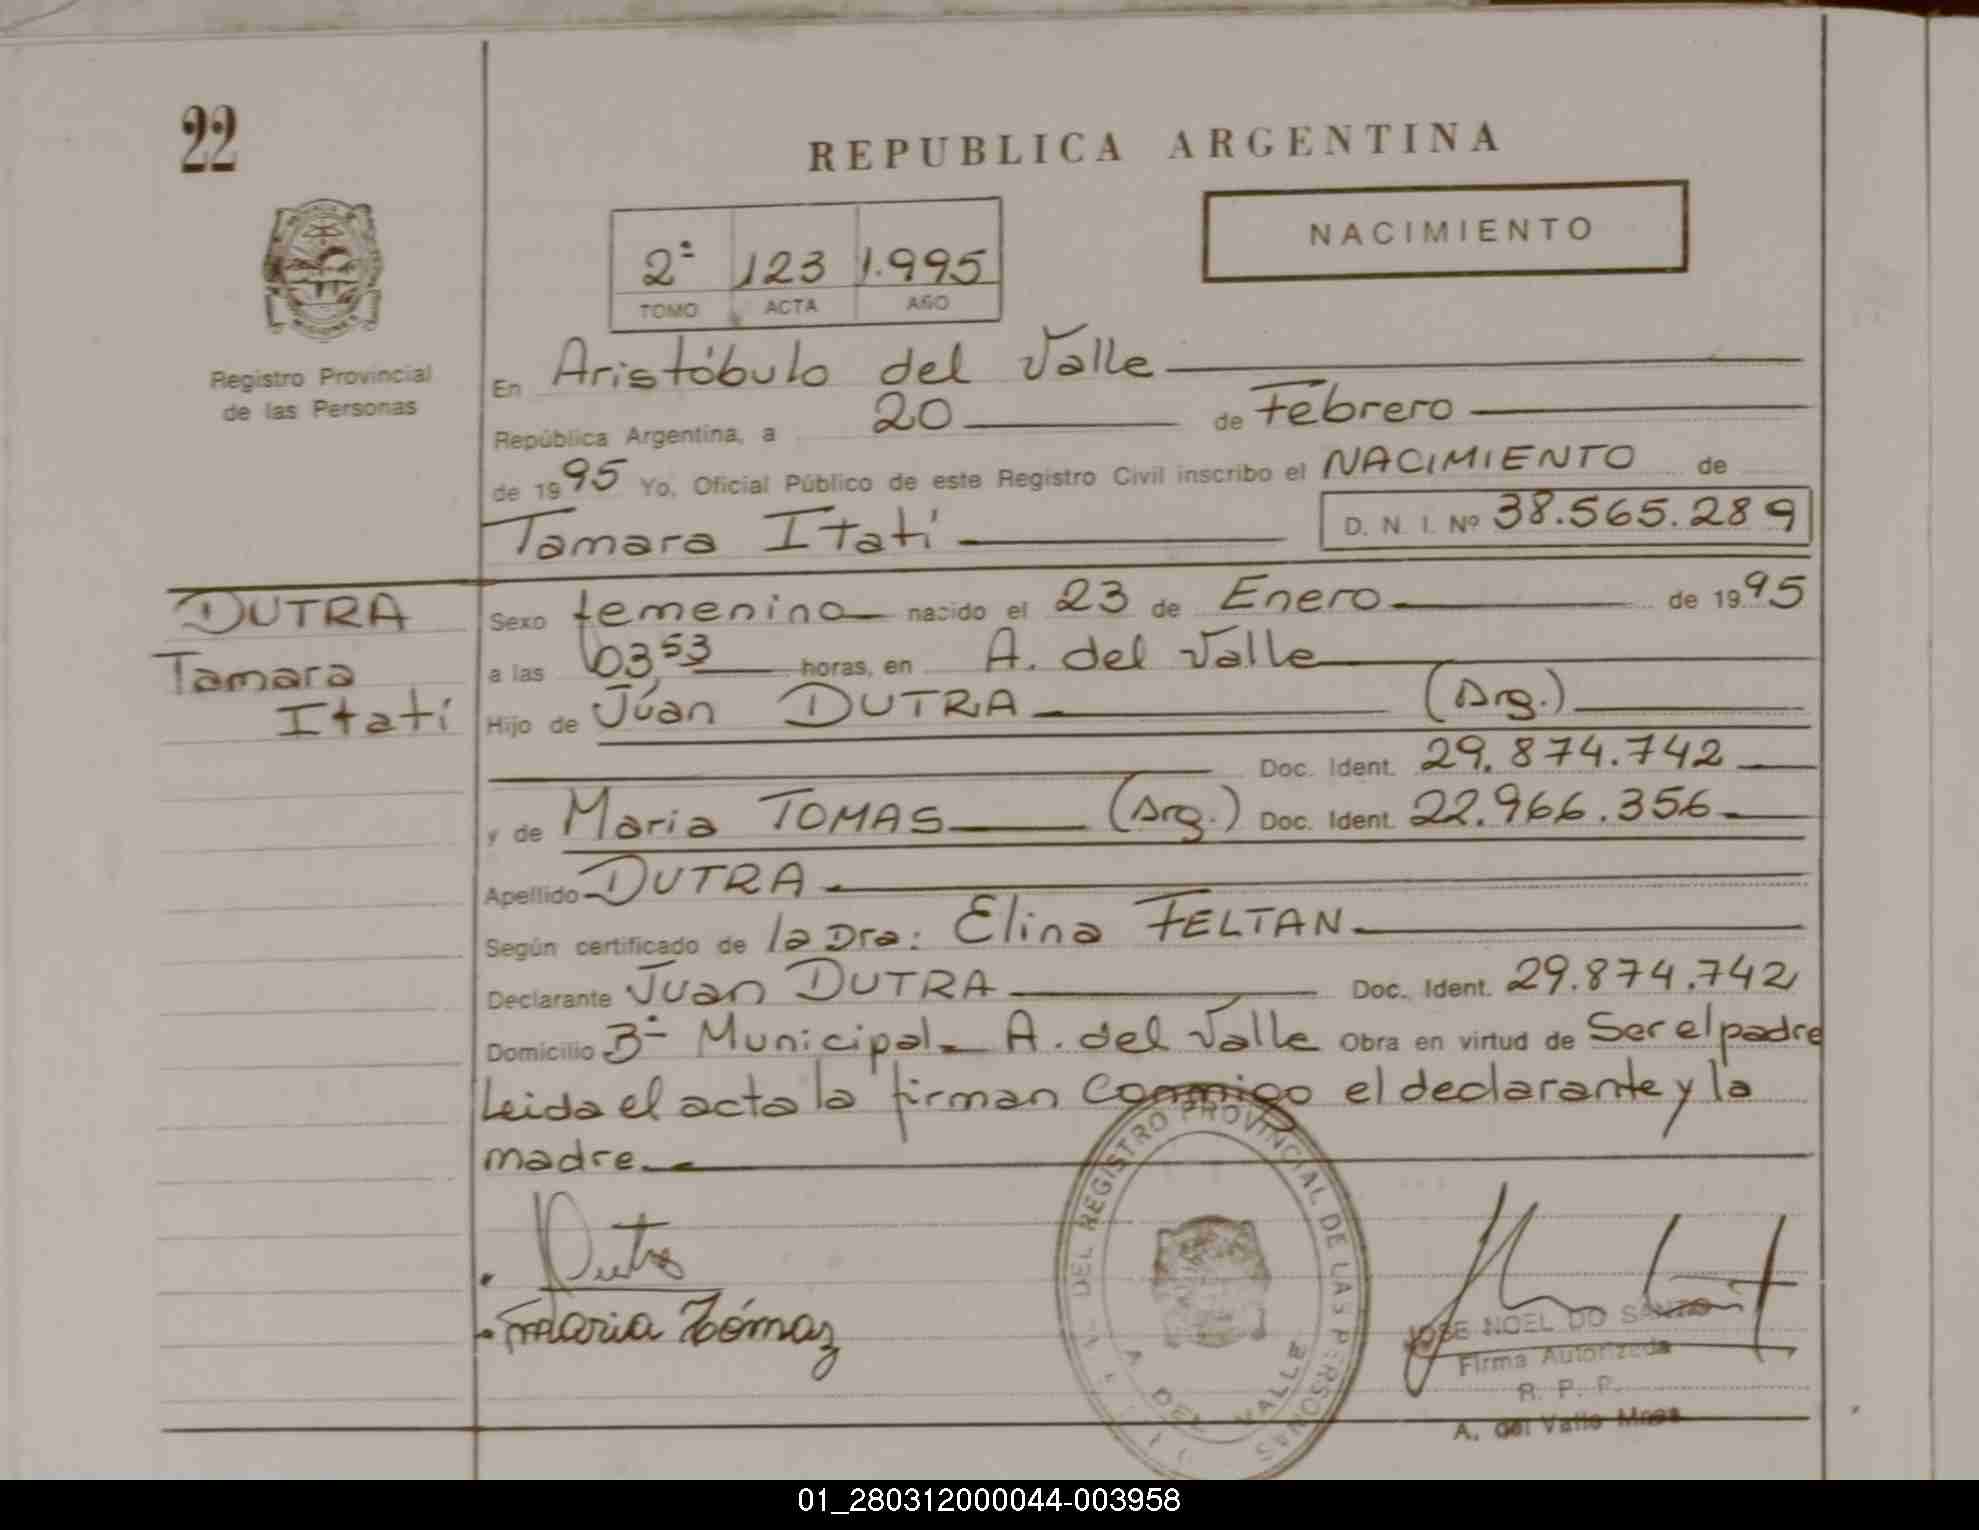 22
REPUBLICA ARGENTINA
NACIMIENTO
2ª 123 1.995
TOMO ACTA AÑO
Registro Provincial
de las Personas
En Aristóbulo del Valle
República Argentina, a 20 de Febrero
de 1995 Yo, Oficial Público de este Registro Civil inscribo el NACIMIENTO de
Tamara Itatí D. N. I. Nº 38.565.289
DUTRA
Tamara
Itatí
Sexo femenino nacido el 23 de Enero de 1995
a las 03,53 horas, en A. del Valle
Hijo de Juan DUTRA (Arg.)
Doc. Ident. 29.874.742
y de Maria TOMAS (Arg.) Doc. Ident. 22.966.356
Apellido DUTRA
Según certificado de la Dra: Elina FELTAN
Declarante Juan DUTRA Doc. Ident. 29.874.742
Domicilio Bº Municipal - A. del Valle Obra en virtud de Ser el padre
Leida el acta la firman conmigo el declarante y la
madre
Dutra
Maria Tómaz
DEL REGISTRO PROVINCIAL DE LAS PERSONAS
A DEL VALLE
JOSE NOEL DO SANTO
Firma Autorizada
R. P. P.
A. del Valle Mnes
01_280312000044-003958